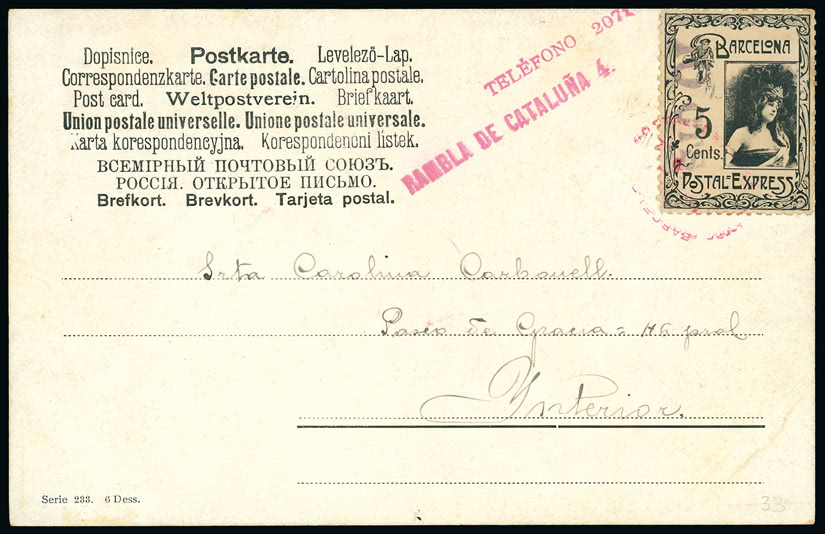 Dopisnice. Postkarte. Levelező-Lap.
Correspondenzkarte. Carte postale. Cartolina postale.
Post card. Weltpostverein. Briefkaart.
Union postale universelle. Unione postale universale.
Karta korespondencyjna. Korespondenčni listek.
ВСЕМІРНЫЙ ПОЧТОВЫЙ СОЮЗЪ.
РОССІЯ. ОТКРЫТОЕ ПИСЬМО.
Brefkort. Brevkort. Tarjeta postal.
TELÉFONO 2071
RAMBLA DE CATALUÑA 4.
BARCELONA
5
Cents.
POSTAL-EXPRESS
Srta Carolina Carbonell.
Paseo de Gracia = 46 pral
Ynterior.
Serie 233. 6 Dess.
33